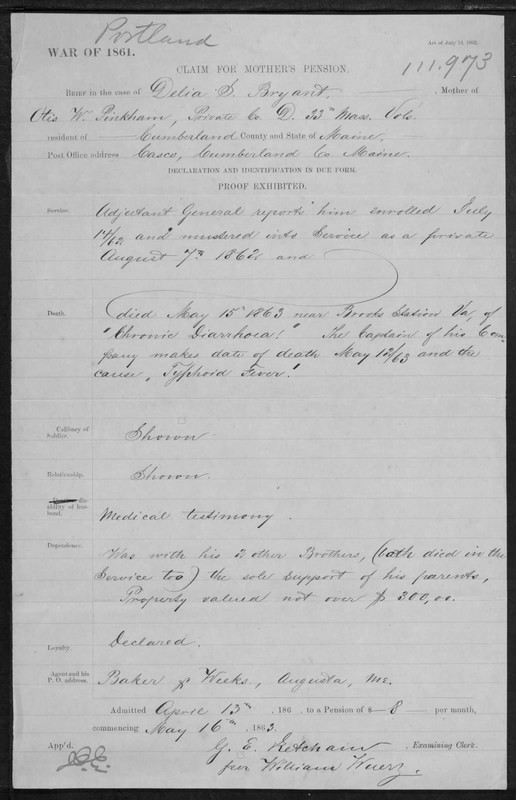 Portland
WAR OF 1861.
Act of July 14, 1862.
CLAIM FOR MOTHER'S PENSION.
111.973
BRIEF in the case of Delia S. Bryant, Mother of
Otis W. Pinkham, Private Co. D. 33d Mass. Vols.
resident of Cumberland County and State of Maine,
Post Office address Casco, Cumberland Co. Maine.
DECLARATION AND IDENTIFICATION IN DUE FORM.
PROOF EXHIBITED.
Service. Adjutant General reports him enrolled July
14/62 and mustered into Service as a private
August 7th 1862 and
Death. died May 15 1863 near Brooks Station Va, of
"Chronic Diarrhoea!" The Captain of his Com-
pany makes date of death May 12/63 and the
cause, "Typhoid Fever!"
Celibacy of Soldier. Shown
Relationship. Shown.
disability of husband. Medical testimony.
Dependence. Was with his 2 other Brothers, (both died in the
Service too) the sole support of his parents,
Property valued not over $300,00.
Loyalty. Declared.
Agent and his P. O. address. Baker & Weeks, Augusta, Me.
Admitted April 13th, 186 , to a Pension of $ 8 per month,
commencing May 16th, 1863.
App'd. G. E. Ketcham, Examining Clerk.
per William Wuerz.